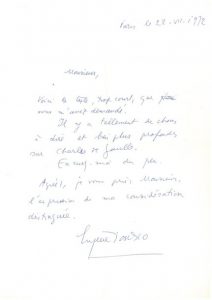 Paris le 22-VII-1972
Monsieur,
Voici le texte, trop court, que
vous m'avez demandé.
Il y a tellement de choses
à dire et bien plus profondes
sur Charles de Gaulle.
Excusez-moi du peu.
Agréez, je vous prie, Monsieur,
l'expression de ma considération
distinguée.
Eugène Ionesco